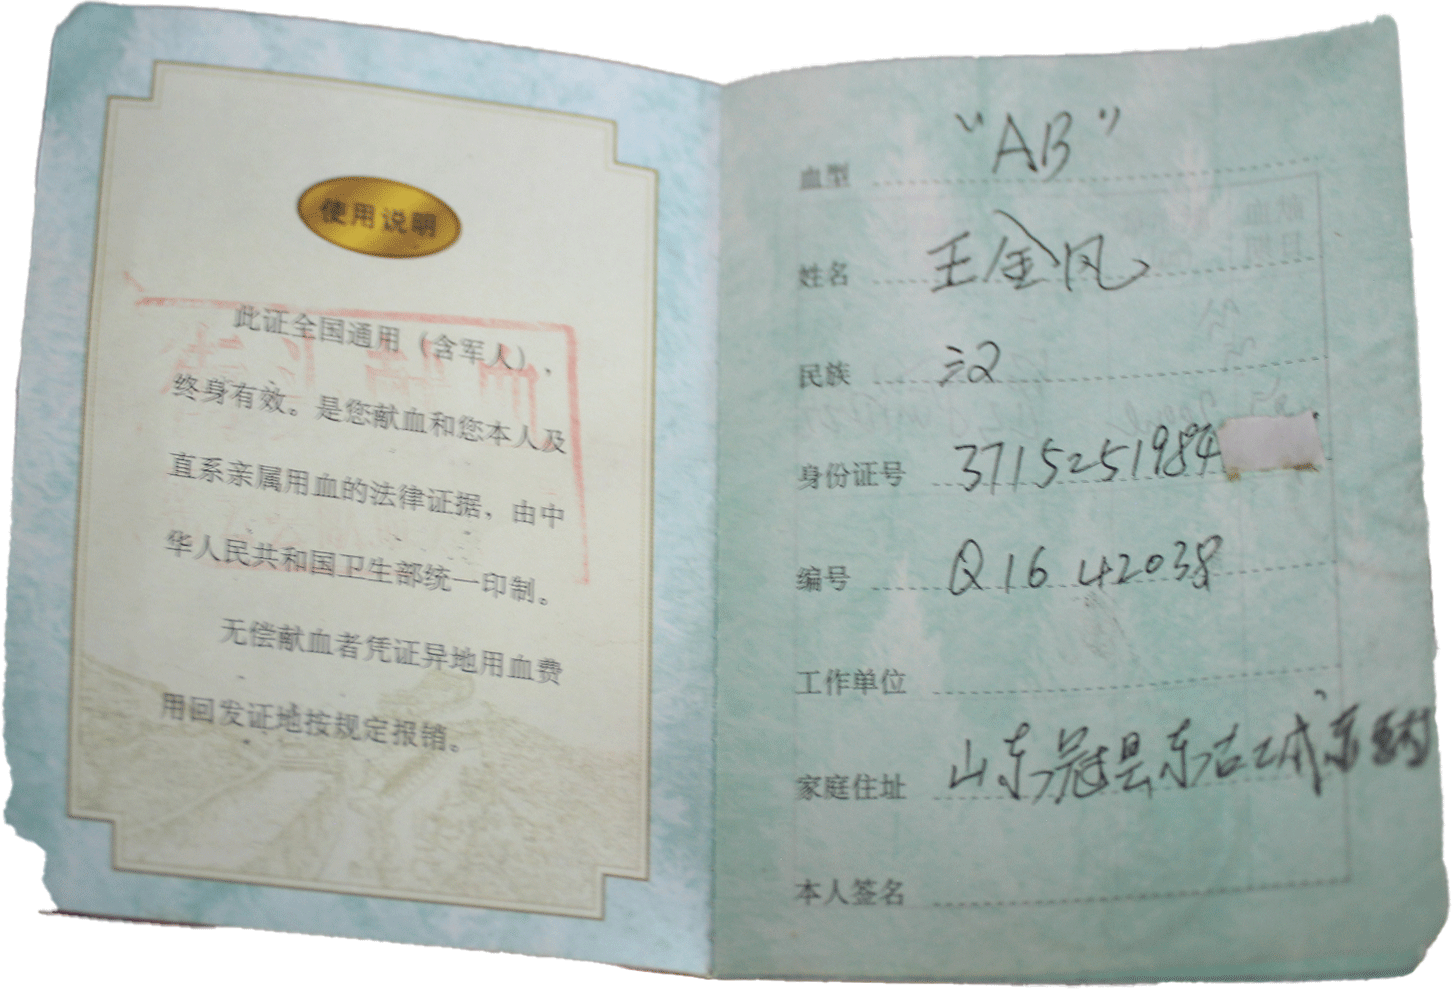 使用说明
此证全国通用（含军人），
终身有效。是您献血和您本人及
直系亲属用血的法律证据，由中
华人民共和国卫生部统一印制。
无偿献血者凭证异地用血费
用回发证地按规定报销。
血型 "AB"
姓名 王金凤
民族 汉
身份证号 3715251984
编号 Q1642038
工作单位
家庭住址 山东冠县东古城东
本人签名